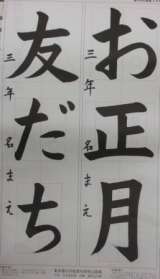 お正月
三年 名まえ
友だち
三年 名まえ